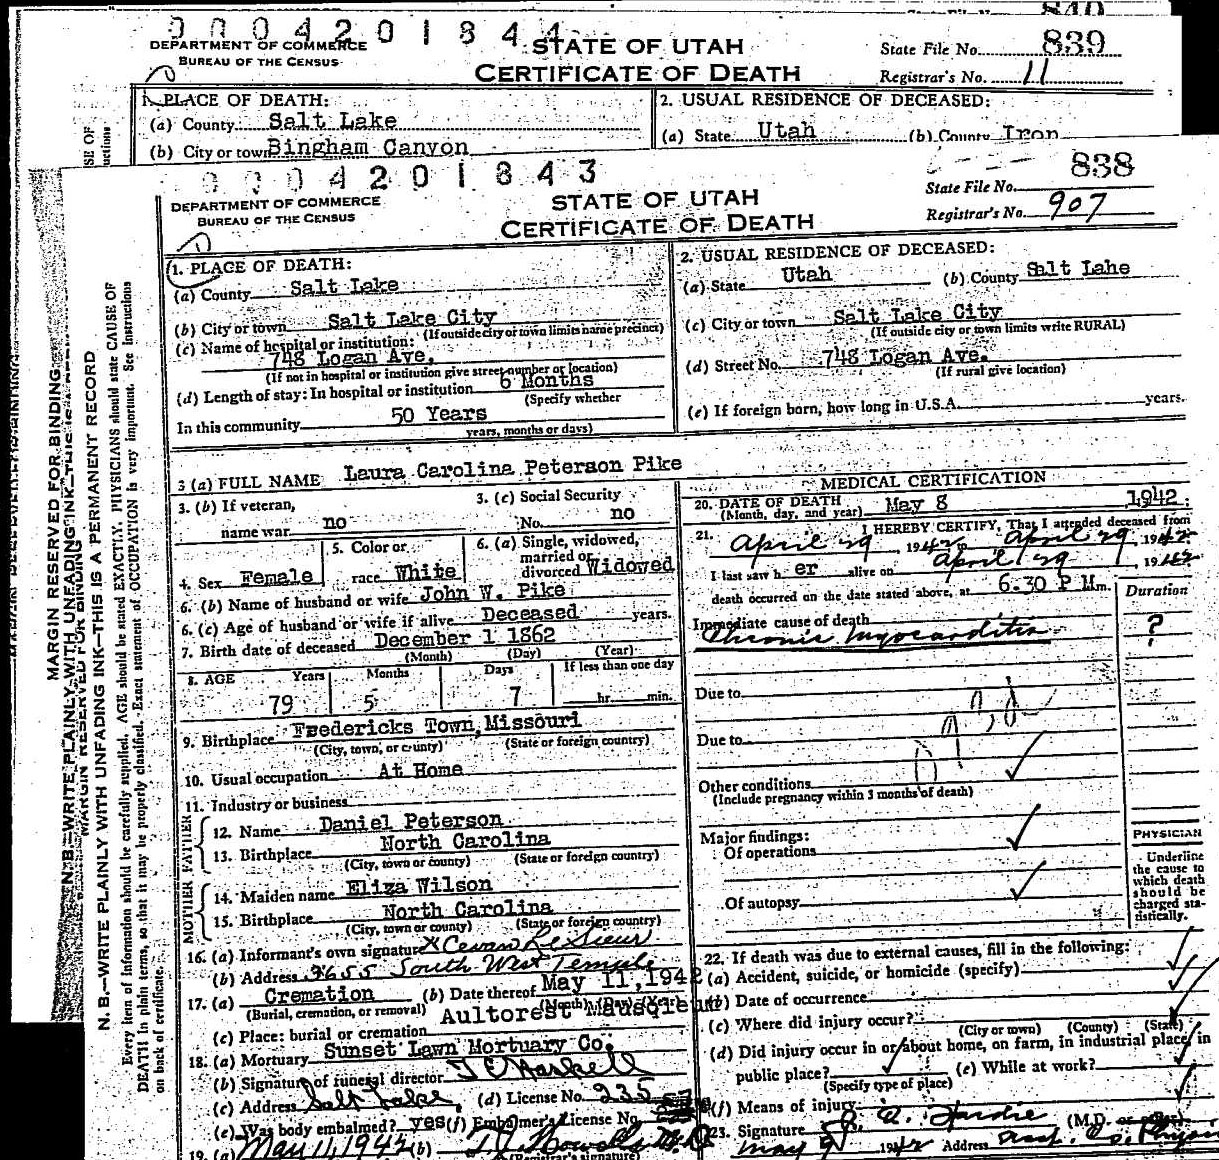 840
0004201844
DEPARTMENT OF COMMERCE
BUREAU OF THE CENSUS
STATE OF UTAH
CERTIFICATE OF DEATH
State File No. 839
Registrar's No. 11
1. PLACE OF DEATH:
(a) County Salt Lake
(b) City or town Bingham Canyon
2. USUAL RESIDENCE OF DECEASED:
(a) State Utah (b) County Iron
0004201843
DEPARTMENT OF COMMERCE
BUREAU OF THE CENSUS
STATE OF UTAH
CERTIFICATE OF DEATH
State File No. 838
Registrar's No. 907
1. PLACE OF DEATH:
(a) County Salt Lake
(b) City or town Salt Lake City
(If outside city or town limits name precinct)
(c) Name of hospital or institution:
748 Logan Ave.
(If not in hospital or institution give street number or location)
(d) Length of stay: In hospital or institution 6 Months
(Specify whether
In this community 50 Years
years, months or days)
2. USUAL RESIDENCE OF DECEASED:
(a) State Utah (b) County Salt Lahe
(c) City or town Salt Lake City
(If outside city or town limits write RURAL)
(d) Street No. 748 Logan Ave.
(If rural give location)
(e) If foreign born, how long in U.S.A. years.
3 (a) FULL NAME Laura Carolina Peterson Pike
3. (b) If veteran,
name war no
3. (c) Social Security
No. no
4. Sex Female
5. Color or
race White
6. (a) Single, widowed,
married or
divorced Widowed
6. (b) Name of husband or wife John W. Pike
6. (c) Age of husband or wife if alive Deceased years.
7. Birth date of deceased December 1 1862
(Month) (Day) (Year)
8. AGE Years Months Days If less than one day
79 5 7 hr. min.
9. Birthplace Fredericks Town, Missouri
(City, town, or county) (State or foreign country)
10. Usual occupation At Home
11. Industry or business
FATHER
12. Name Daniel Peterson
13. Birthplace North Carolina
(City, town or county) (State or foreign country)
MOTHER
14. Maiden name Eliza Wilson
15. Birthplace North Carolina
(City, town or county) (State or foreign country)
16. (a) Informant's own signature
(b) Address 2655 South West Temple
17. (a) Cremation (b) Date thereof May 11, 1942
(Burial, cremation, or removal) (Month) (Day) (Year)
(c) Place: burial or cremation Aultorest Mausoleum
18. (a) Mortuary Sunset Lawn Mortuary Co.
(b) Signature of funeral director
(c) Address Salt Lake (d) License No. 235
(e) Was body embalmed? yes (f) Embalmer's License No.
19. (a) May 11, 1942 (b)
(Registrar's signature)
MEDICAL CERTIFICATION
20. DATE OF DEATH May 8 1942
(Month, day, and year)
21. I HEREBY CERTIFY, That I attended deceased from
April 29, 1942 to April 29, 1942
I last saw h er alive on April 29, 1942
death occurred on the date stated above, at 6.30 P M m.
Duration
Immediate cause of death
Chronic Myocarditis ?
Due to
Due to
Other conditions
(Include pregnancy within 3 months of death)
Major findings:
Of operations
Of autopsy
PHYSICIAN
Underline
the cause to
which death
should be
charged sta-
tistically.
22. If death was due to external causes, fill in the following:
(a) Accident, suicide, or homicide (specify)
(b) Date of occurrence
(c) Where did injury occur?
(City or town) (County) (State)
(d) Did injury occur in or about home, on farm, in industrial place, in
public place? (e) While at work?
(Specify type of place)
(f) Means of injury
23. Signature (M.D.
May 9 1942 Address
MARGIN RESERVED FOR BINDING
N. B.—WRITE PLAINLY WITH UNFADING INK—THIS IS A PERMANENT RECORD
Every item of information should be carefully supplied. AGE should be stated EXACTLY. PHYSICIANS should state CAUSE OF
DEATH in plain terms, so that it may be properly classified. Exact statement of OCCUPATION is very important. See instructions
on back of certificate.